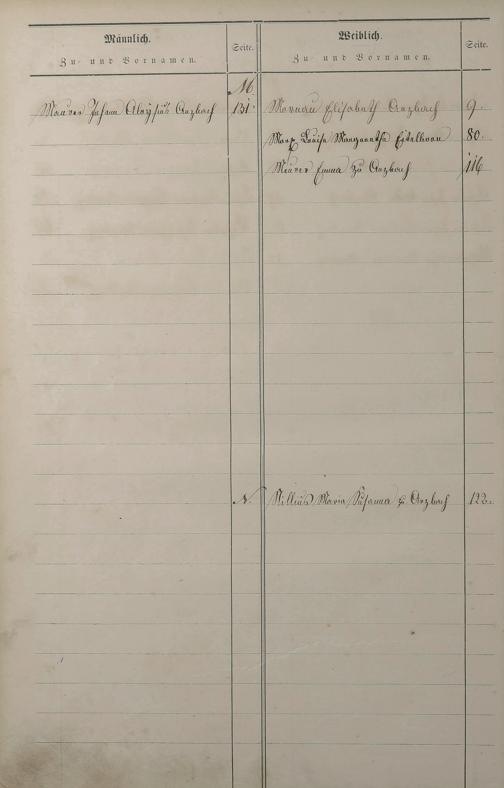 Männlich.
Zu- und Vornamen.
Seite.
Weiblich.
Zu- und Vornamen.
Seite.
M.
Maurer Johann Aloysius Arzbach 131.
Mornau Elisabeth Arzbach 9.
Marx Louise Margaretha Eitelborn 80.
Meurer Emma zu Arzbach 116
N.
Nillius Maria Susanna z. Arzbach 122.